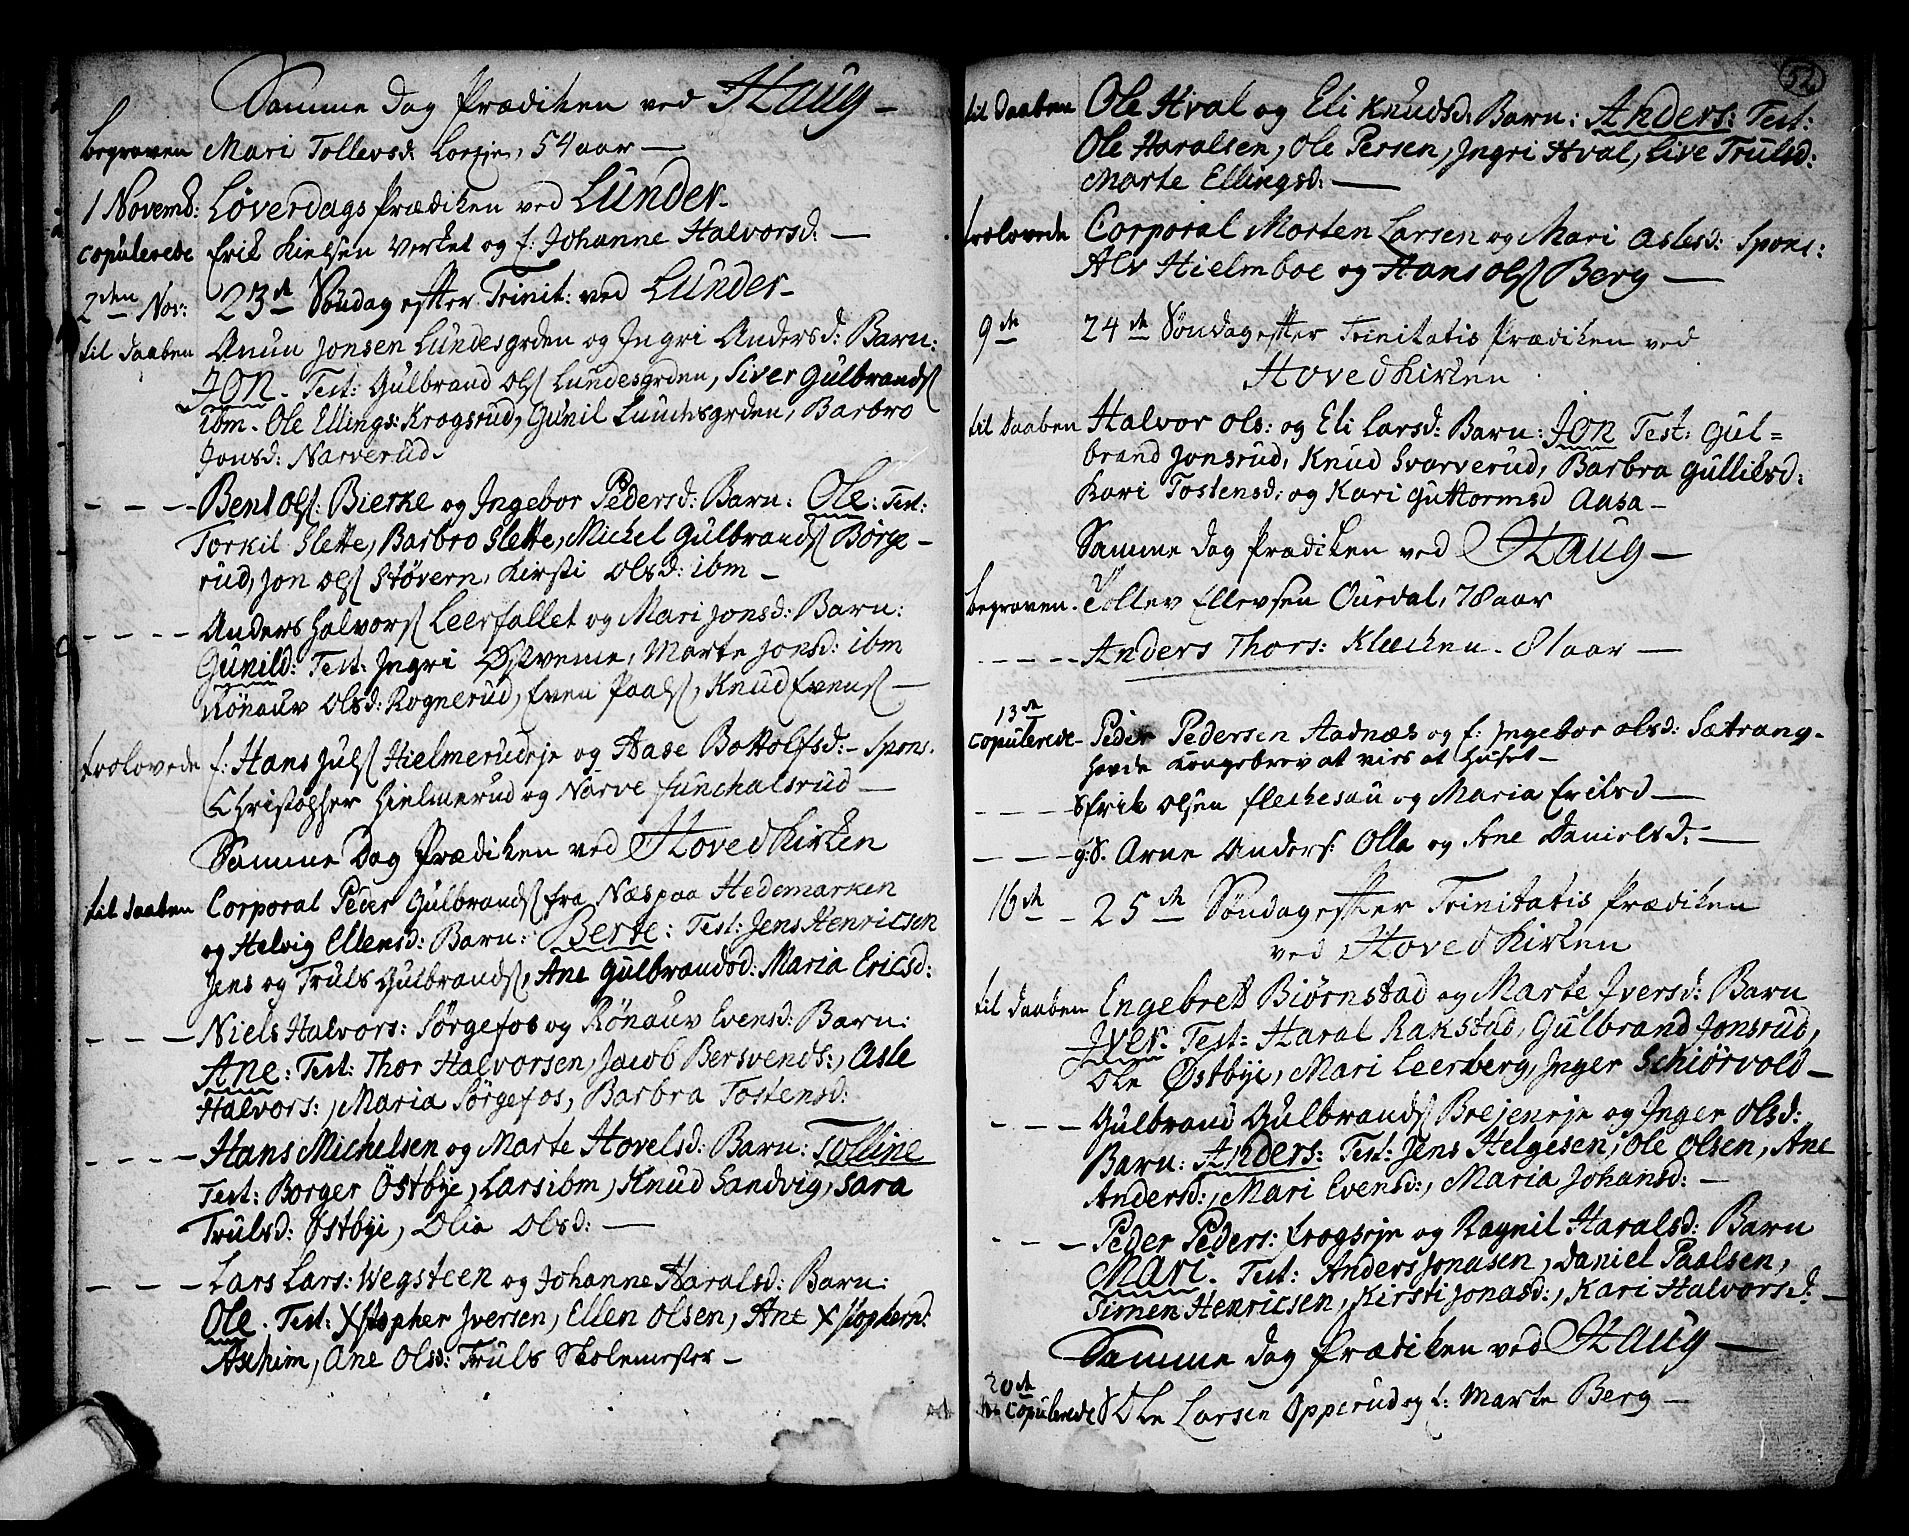 Samme Dag Prædiken ved Haug –
begraven Mari Tollevsd: 54 aar –
1 Novemb: Løverdags Prædiken ved Lunder –
copulerede Erik Kielsen Verket og f: Johanne Halvorsd: –
2den Nov: 23de Søndag efter Trinit: ved Lunder –
til Daaben Anun Jonsen Lundesgrden og Ingri Andersd: Barn:
Jon. Test: Gulbrand Ols: Lundesgrden, Siver Gulbrands:
ibm. Ole Ellings: Krogsrud, Gunil Lundesgrden, Barbro
Jonsd: Narverud.
– – – – Bent Ols: Bierke og Ingebor Pedersd: Barn: Ole: Test:
Torkil Slette, Barbro Slette, Michel Gulbrands: Børge-
rud, Jon Ols: Støvern, Kirsti Olsd: ibm –
– – – – Anders Halvors: Leerfallet og Mari Jonsd: Barn:
Gunild: Test: Ingri Østveine, Marte Jonsd: ibm
Rønauv Olsd: Rognerud, Even Paals:, Knud Evens: –
trolovede f: Hans Juls: Hielmerudeje og Aase Bottolfsd: – Spons.
Christopher Hielmerud og Narve Funchalsrud –
Samme Dag Prædiken ved Hovedkirken
til Daaben Corporal Peder Gulbrands: fra Næs paa Hedemarken
og Helvig Ellensd: Barn: Berte: Test: Jens Henricsen
Jens og Truls Gulbrands:, Ane Gulbrandsd: Maria Ericsd:
– – – – Niels Halvors: Sørgefos og Rønauv Evensd: Barn:
Ane: Test: Thor Halvorsen, Jacob Bersvends:, Asle
Halvors:, Maria Sørgefos, Barbra Tostensd:
– – – – Hans Michelsen og Marte Hovelsd: Barn: Tolline
Test: Borger Østbye, Lars ibm, Knud Sandvig, Sara
Trulsd: Østbyi, Olia Olsd: –
– – – Lars Lars: Wegsteen og Johanne Haralsd: Barn:
Ole. Test: Xstopher Iversen, Ellen Olsen, Ane Xstophersd:
Aschim, Ane Olsd: Truls Skolemester –
52
til Daaben Ole Hval og Eli Knudsd: Barn: Anders: Test:
Ole Haralsen, Ole Persen, Ingri Hval, Live Trulsd:
Marte Ellingsd: –
trolovede Corporal Morten Larsen og Mari Aslesd: Spons:
Alv Hielmboe og Hans Ols: Berg –
9de 24de Søndag efter Trinitatis Prædiken ved
Hovedkirken
til Daaben Halvor Ols: og Eli Larsd: Barn: Jon Test: Gul=
brand Jonsrud, Knud Svarverud, Barbra Gulliksd:
Kari Tostensd: og Kari Guttormsd Aasa –
Samme Dag Prædiken ved Haug –
begraven. Tollev Ellevsen Ouerdal, 78 aar
– – – – Anders Thors: Klæcken. 81 aar –
13de
copulerede – Peder Pedersen Aadnæs og f: Ingebor Olsd: Sætrang –
havde Kongebrev at vies at Huset –
– – – – S Erik Olsen Fleckesau og Maria Eriksd –
– – – g: S. Arne Anders: Olla og Ane Danielsd: –
16de – 25de Søndag efter Trinitatis Prædiken
ved Hovedkirken
til Daaben Engebret Biørnstad og Marte Iversd: Barn
Iver: Test: Haral Rakstad, Gulbrand Jonsrud,
Ole Østbye, Mari Leerberg, Inger Schiørvold –
– – – Gulbrand Gulbrands: Brejeneje og Inger Olsd:
Barn: Anders: Test: Jens Helgesen, Ole Olsen, Ane
Andersd:, Mari Evensd:, Maria Johansd: –
– – – Peder Peders: Krogseje og Ragnil Haralsd: Barn
Mari. Test: Anders Jonasen, Daniel Paalsen,
Simen Henricsen, Kirsti Jonasd:, Kari Halvorsd. –
Samme Dag Prædiken ved Haug –
20de
copulerede S Ole Larsen Opperud og f: Marte Berg –